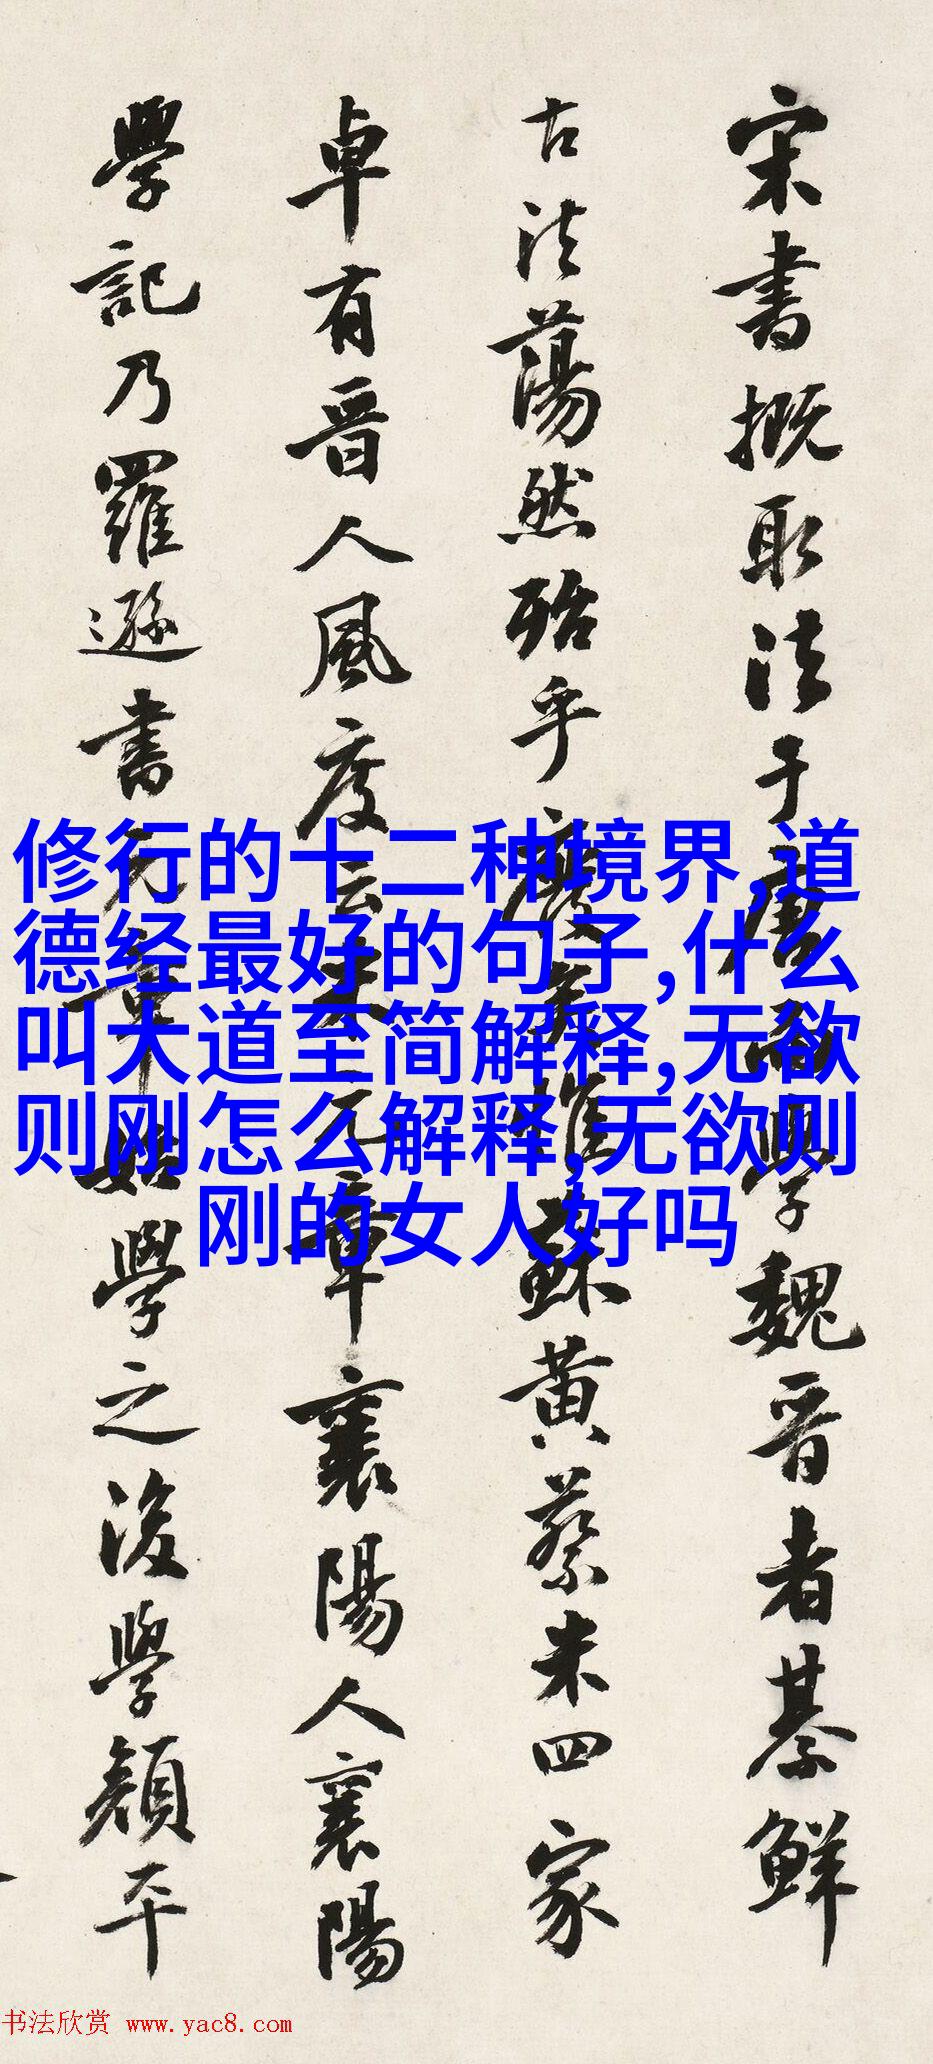 宋書概取法于唐而學魏晋者綦鮮
古法蕩然殆乎廢矣惟蘇黄蔡米四家
卓有晋人風度云米元章襄陽人襄陽
學記乃羅遜書元章始學之後學顏平
修行的十二种境界,道
德经最好的句子,什么
叫大道至简解释,无欲
则刚怎么解释,无欲则
刚的女人好吗
书法欣赏 www.yac8.com